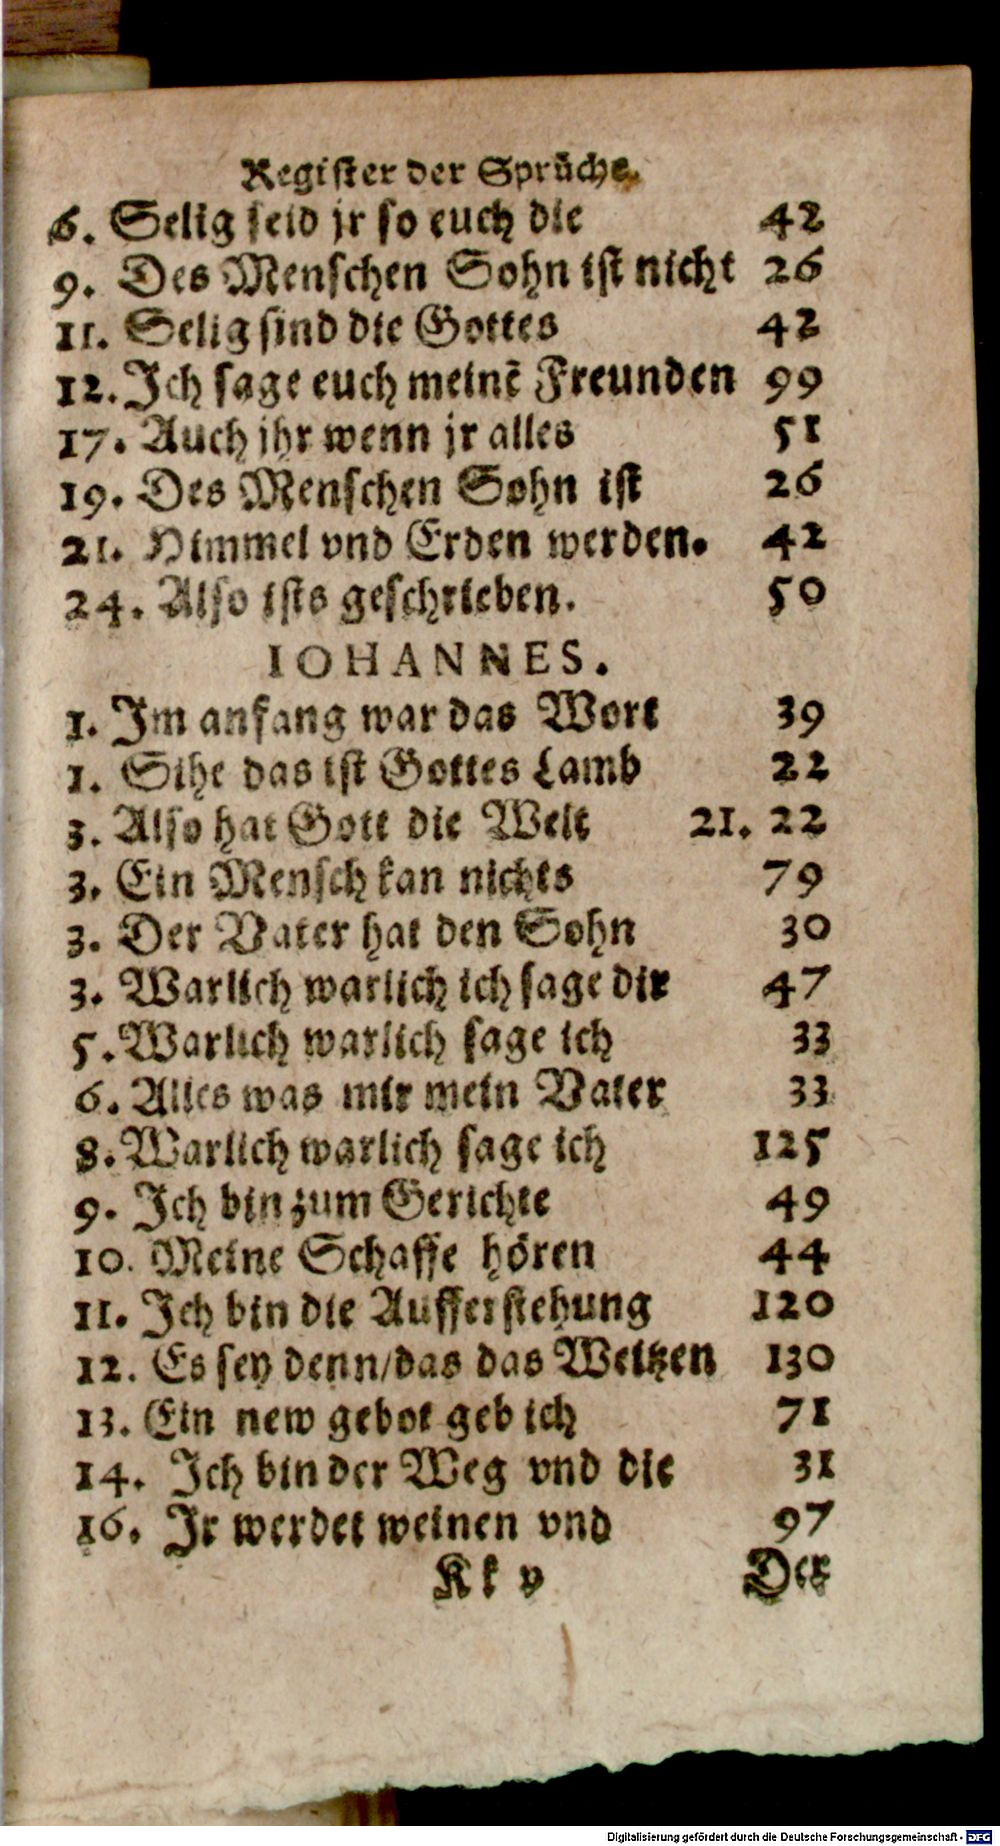 Register der Sprüche.
6. Selig seid jr so euch die 42
9. Des Menschen Sohn ist nicht 26
11. Selig sind die Gottes 42
12. Ich sage euch meinẽ Freunden 99
17. Auch jhr wenn jr alles 51
19. Des Menschen Sohn ist 26
21. Himmel vnd Erden werden. 42
24. Also ists geschrieben. 50
IOHANNES.
1. Im anfang war das Wort 39
1. Sihe das ist Gottes Lamb 22
3. Also hat Gott die Welt 21. 22
3. Ein Mensch kan nichts 79
3. Der Vater hat den Sohn 30
3. Warlich warlich ich sage dir 47
5. Warlich warlich sage ich 33
6. Alles was mir mein Vater 33
8. Warlich warlich sage ich 125
9. Ich bin zum Gerichte 49
10. Meine Schaffe hören 44
11. Ich bin die Aufferstehung 120
12. Es sey denn/das das Weitzen 130
13. Ein new gebot geb ich 71
14. Ich bin der Weg vnd die 31
16. Ir werdet weinen vnd 97
Kk v Der
Digitalisierung gefördert durch die Deutsche Forschungsgemeinschaft - DFG